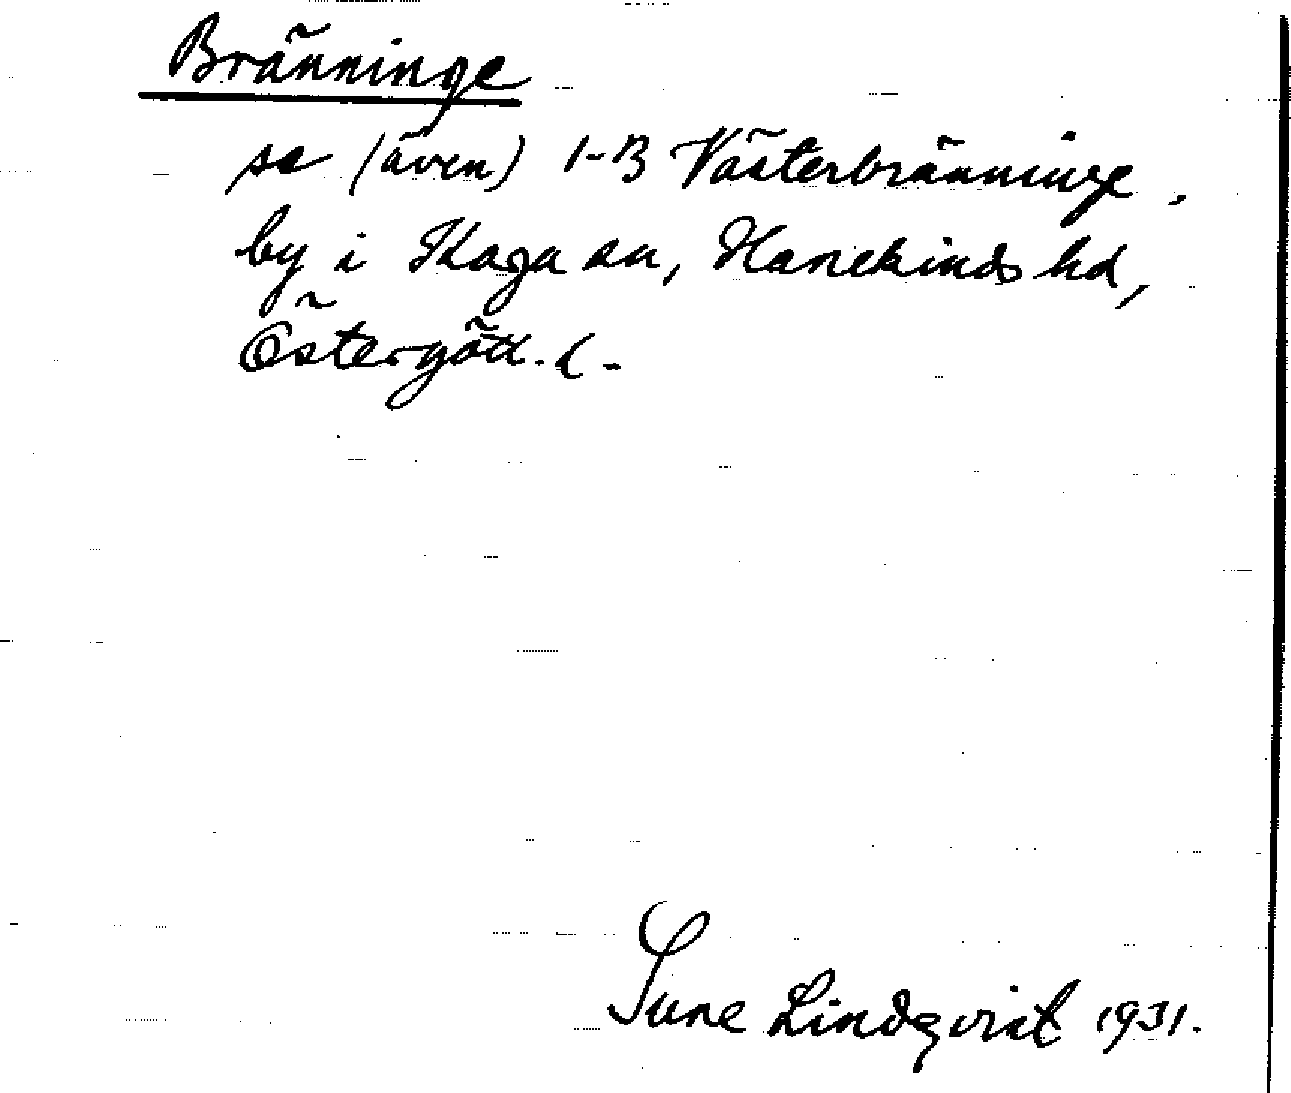 Bränninge
se (även) 1-3 Västerbränninge,
by i Kaga sn, Hanekinds hd,
Östergötl. l.
Sune Lindqvist 1931.